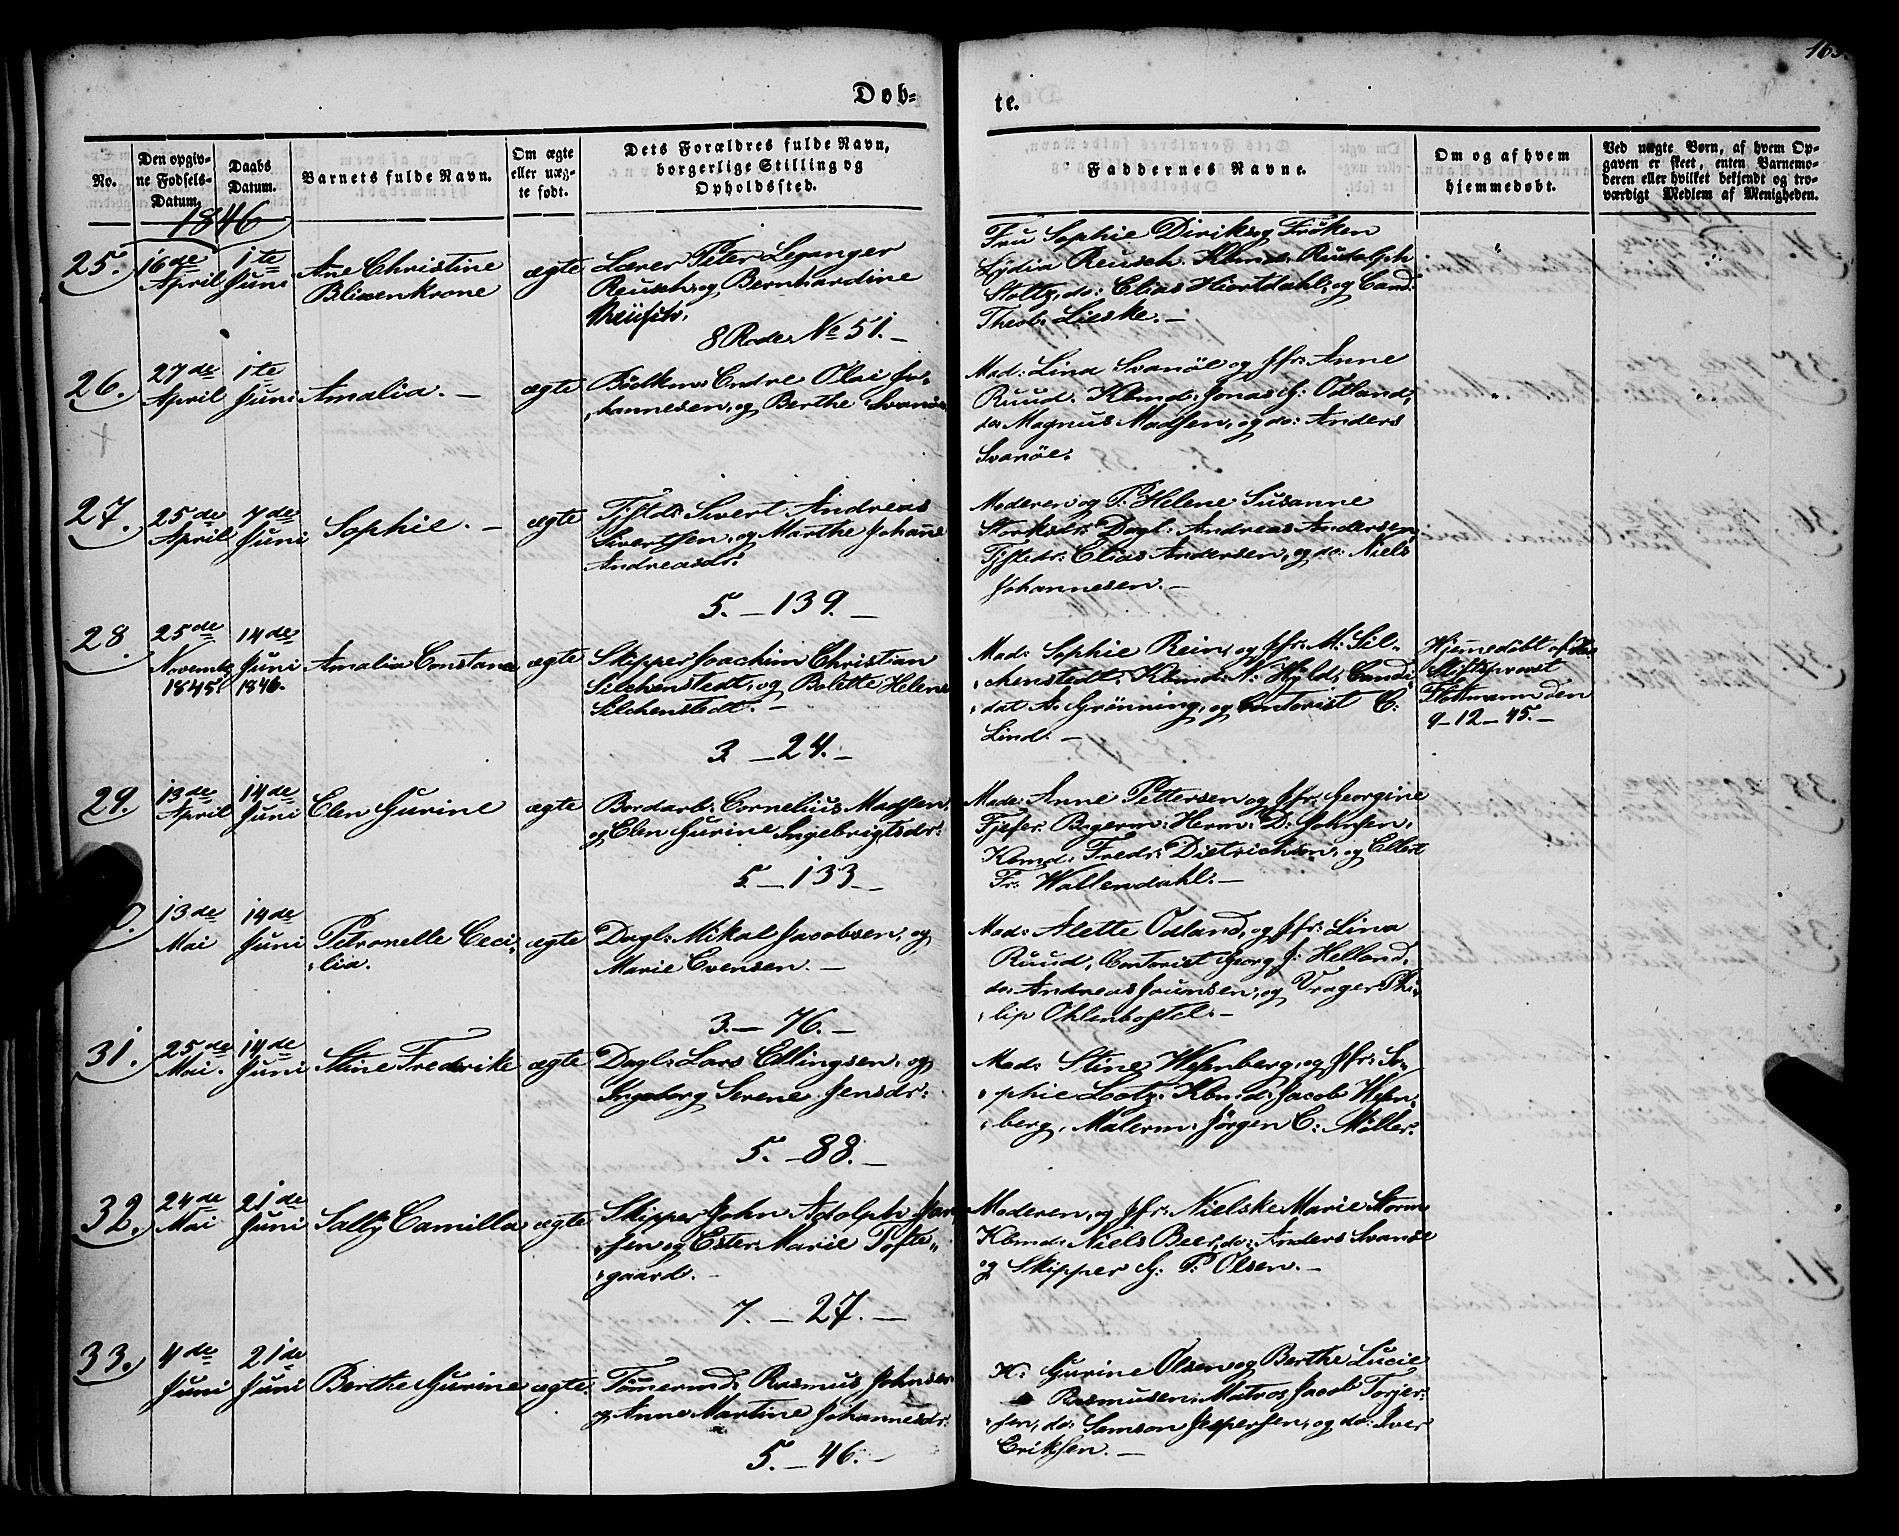 163.
Døb-
te.
No.
Den opgiv-
ne Fødsels-
Datum.
Daabs
Datum.
Barnets fulde Navn.
Om ægte
eller uæg-
te født.
Dets Forældres fulde Navn,
borgerlige Stilling og
Opholdssted.
Faddernes Navne.
Om og af hvem
hjemmedøbt.
Ved uægte Børn, af hvem Op-
gaven er skeet, enten Barnemo-
deren eller hvilket bekjendt og tro-
værdigt Medlem af Menigheden.
1846
25.
16de
April
1te
Juni
Ane Christine
Blixenkrone
ægte
Lærer Peter Leganger
Reusch, og Bernhardine
8 Rode No 51. —
Fru Sophie Diriks og Frøken
Lydia Reusch. Kbmd: Rudolph
Stoltz, do: Elias Hiertdahl, og Cand:
Theol: Lieske. —
26.
27de
April
1te
Juni
Amalia. —
ægte
Endre Olai Jo-
hannesen, og Berthe Svanøe
Mad: Lina Svanöe og Jfr: Anne
Ruud. Kbmd: Jonas G: Odland,
do: Magnus Madsen, og do: Anders
Svanöe.
27.
25de
April
7de
Juni
Sophie. —
ægte
Sivert Andreas
Sivertsen, og Marthe Johane
Andreasdr.
5. — 139. —
Moderen og P. Helene Susanne
Dagl: Andreas Andersen,
Elias Andersen, og do: Niels
Johannesen. —
28.
25de
Novembr
1845.
14de
Juni
1846.
Amalia Constance
ægte
Skipper Joachim Christian
Silchenstedt, og Bolette Helene
Silchenstedt. —
3. — 24. —
Mad: Sophie Rein, og Jfr: M: Sil-
chenstedt. Kbmd: N: Hyld, Candi-
dat A: Grönning, og Contorist C:
Lind. —
Hjemedöbt af
Stiftsprovst
Flottmann den
9-12-45. —
29.
13de
April
14de
Juni
Elen Gurine
ægte
Bordarb: Cornelius Madsen,
og Elen Gurine Ingebrigtsdr:
5. — 133 —
Mad: Anne Pettersen og Jfr: Georgine
Fjefer. Bogerm: Herm: D: Johnsen,
Kbmd: Fredr: Dietrichson, og Ellert
Fr: Wallendahl. —
13de
Mai
14de
Juni
Petronelle Ceci-
lia.
ægte
Dagl: Mikal Jacobsen, og
Marie Evensen. —
3. — 76. —
Mad: Alette Odland, og Jfr: Lina
Ruud, Contorist Georg J: Helland,
do: Andreas Jaunsen, og Vrager Phi-
lip Ohlenbostel. —
31.
25de
Mai.
14de
Juni
Stine Fredrike
ægte
Dagl: Lars Ellingsen, og
Ingeborg Serene Jensdr:
5. — 88. —
Mad: Stine Wesenberg, og Jfr: So-
phie Lootz. Kbmd: Jacob Wesen-
berg, Malerm: Jörgen C: Möller.
32.
24de
Mai
21de
Juni
Sally Camilla
ægte
Skipper John Adolph Jan-
sen og Ester Marie Tofte-
gaard. —
7. — 27. —
Moderen, og Jfr: Nielske Marie Storm
Kbmd: Niels Beer, do: Anders Svanöe
og Skipper G: P: Olsen. —
33.
4de
Juni
21de
Juni
Berthe Gurine
ægte
Tömermd: Rasmus Johnsen
og Anne Martine Johannesdr:
5. — 46. —
K: Gurine Olsen og Berthe Lucie
Rasmusen. Matros Jacob Torjer-
sen, do: Samson Jespersen, og do: Iver
Eriksen. —